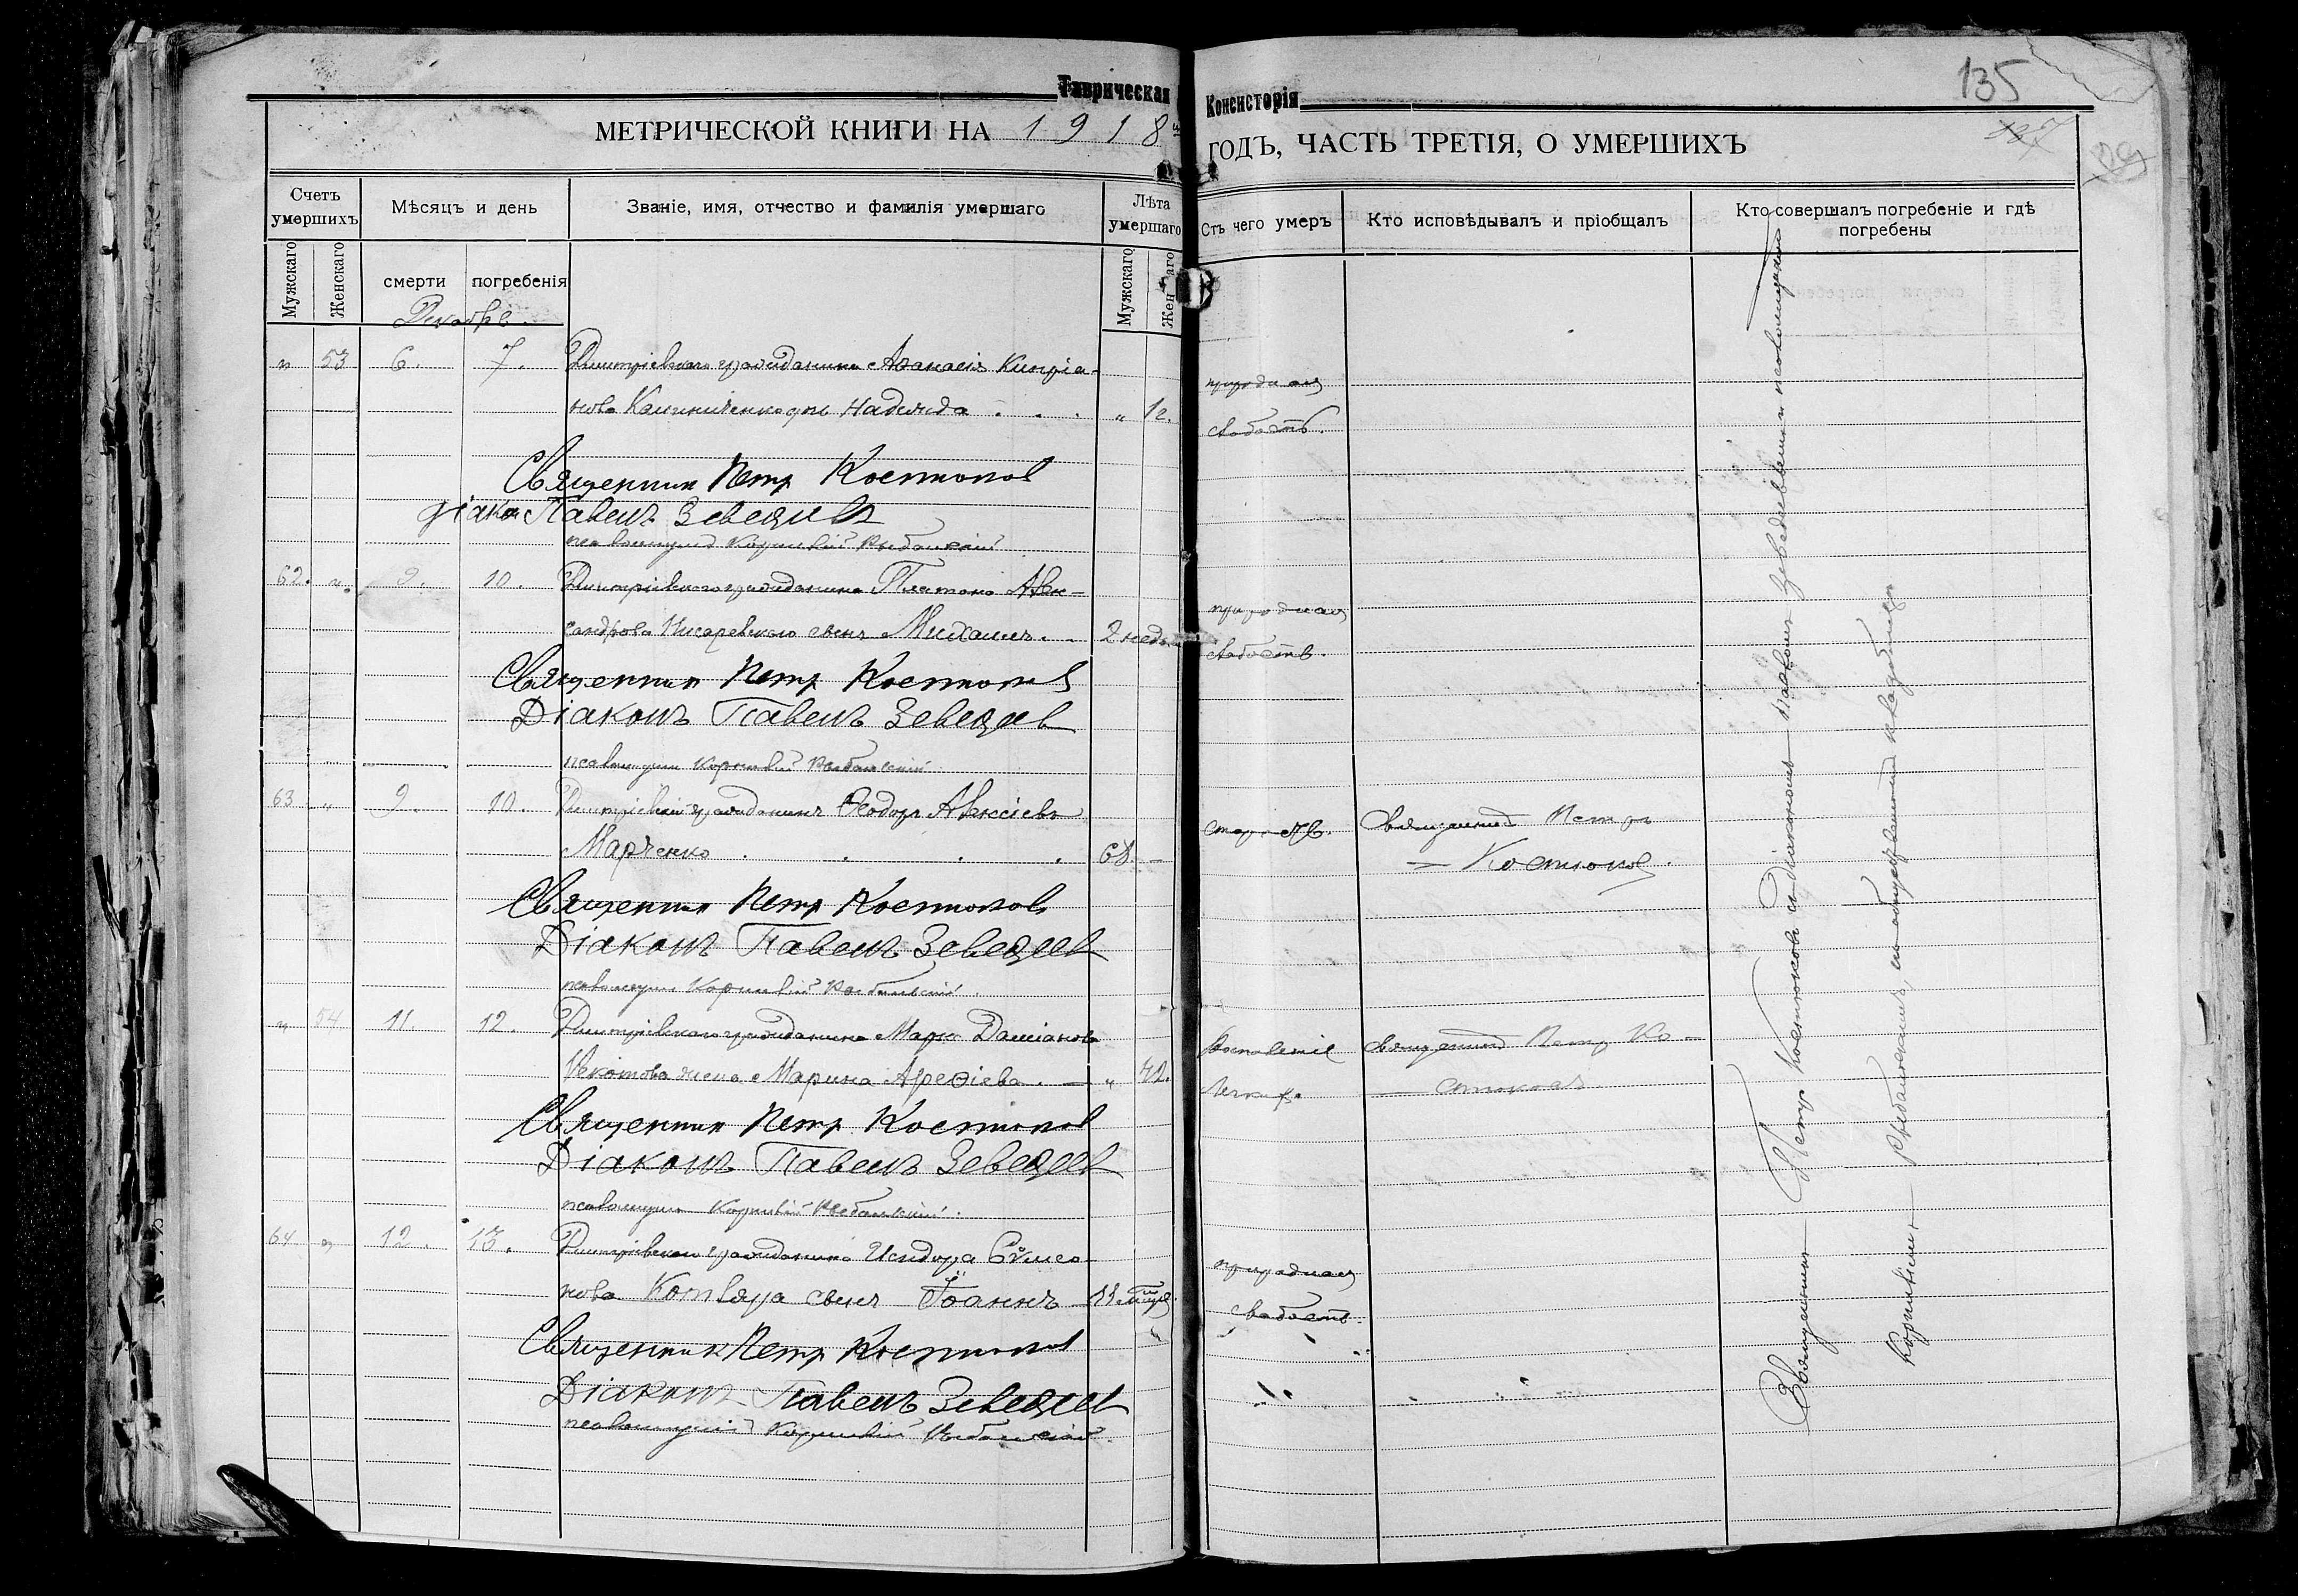 Таврическая Консисторія
135
МЕТРИЧЕСКОЙ КНИГИ НА 1918 ГОДЪ, ЧАСТЬ ТРЕТІЯ, О УМЕРШИХЪ
Счетъ умершихъ
Мѣсяцъ и день
Званіе, имя, отчество и фамилія умершаго
Лѣта умершаго
Отъ чего умеръ
Кто исповѣдывалъ и пріобщалъ
Кто совершалъ погребеніе и гдѣ погребены
Мужскаго
Женскаго
смерти
погребенія
Мужскаго
Женскаго
Декабрь.
" 53 6. 7. Дмитріевскаго гражданина Аѳанасія Кипріа-
нова Калиниченко дочь Надежда . . . " 1 г.
природная
слабость.
Священник Петр Костюков
Діакон Павелъ Зеведеев
псаломщик Корнилій Рыбальскій
62. " 9. 10. Дмитріевскаго гражданина Платона Алек-
сандрова Писаревскаго сынъ Михаилъ. . 2 нед.
природная
слабость.
Священник Петр Костюков
Діаконъ Павелъ Зеведеев
псаломщик Корнилій Рыбальскій
63 " 9. 10. Дмитріевскій гражданинъ Ѳеодоръ Алексіевъ
Марченко . . . . 68. –
старость.
священник Петръ
– Костюковъ.
Священник Петр Костюков
Діаконъ Павелъ Зеведеев
псаломщик Корнилій Рыбальскій.
" 54 11. 12. Дмитріевскаго гражданина Марка Даміанова
жена Марина Арефіева. – " 42.
воспаленіе
легкихъ.
священник Петр Ко-
– стюковъ
Священник Петр Костюков
Діаконъ Павелъ Зеведеев
псаломщик Корнилій Рыбальскій.
64 " 12. 13. Дмитріевскаго гражданина Исидора Сѵмео-
нова Котляра сынъ Іоаннъ 11 мѣсяц.
природная
слабость.
Священник Петр Костюков
Діаконъ Павелъ Зеведеев
псаломщик Корнилій Рыбальскій.
Священникъ Петр Костюковъ съ діакономъ Павломъ Зеведеевымъ и псаломщикомъ
Корниліемъ Рыбальскимъ, на общеприходскомъ кладбищѣ